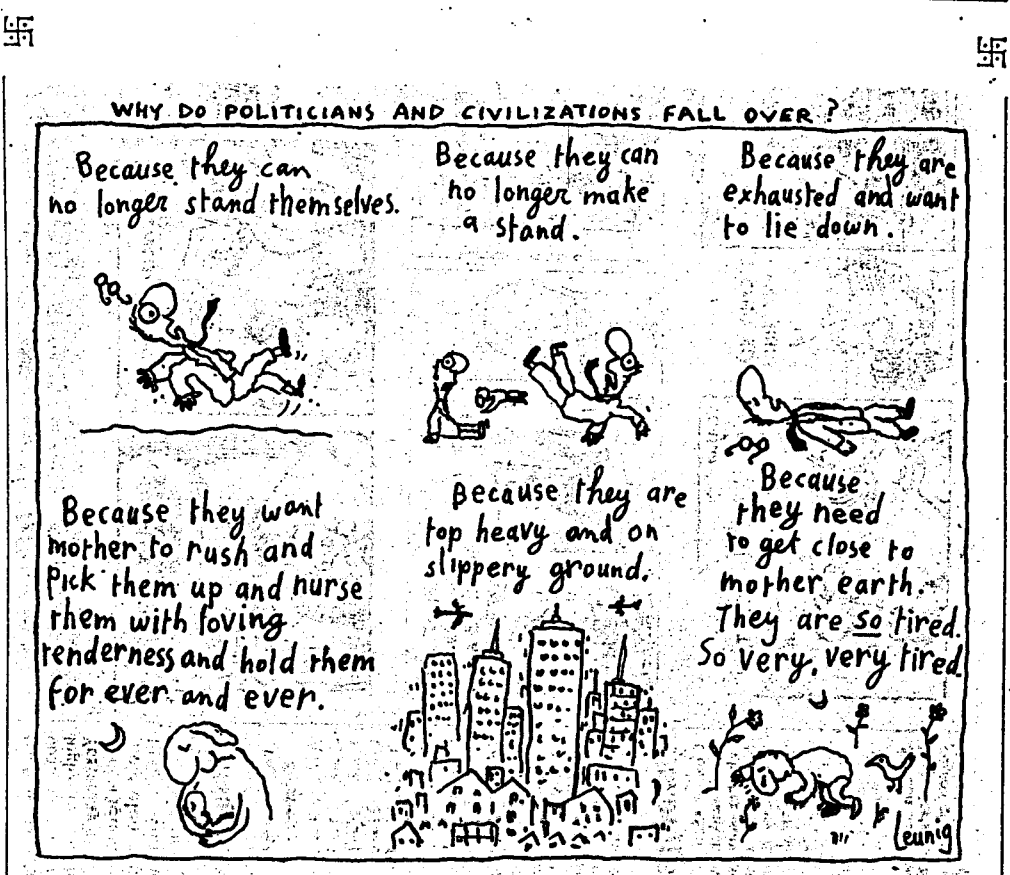 WHY DO POLITICIANS AND CIVILIZATIONS FALL OVER?
Because they can
no longer stand themselves.
Because they can
no longer make
a stand.
Because they are
exhausted and want
to lie down.
Because they want
mother to rush and
pick them up and nurse
them with loving
tenderness and hold them
for ever and ever.
Because they are
top heavy and on
slippery ground.
Because
they need
to get close to
mother earth.
They are so tired.
So very, very tired.
Leunig